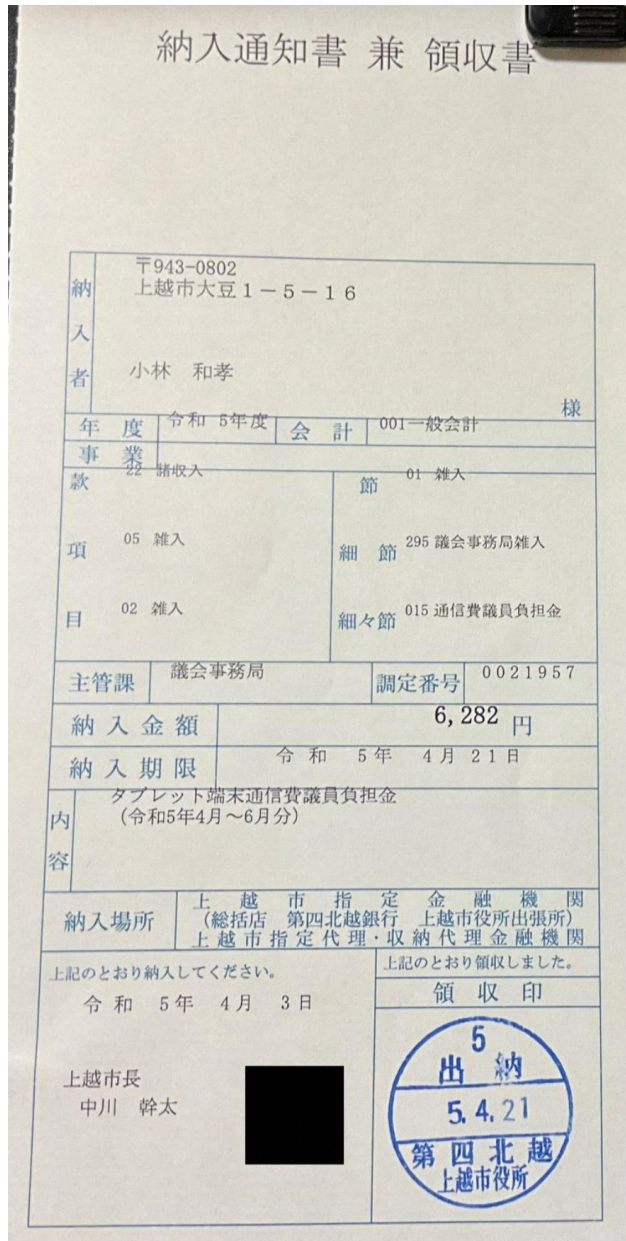 納入通知書 兼 領収書
納入者
〒943-0802
上越市大豆1-5-16
小林 和孝
様
年度 令和 5年度 会計 001一般会計
事業
款 22 諸収入 節 01 雑入
項 05 雑入 細節 295 議会事務局雑入
目 02 雑入 細々節 015 通信費議員負担金
主管課 議会事務局 調定番号 0021957
納入金額 6,282 円
納入期限 令和 5年 4月21日
内容
タブレット端末通信費議員負担金
(令和5年4月~6月分)
納入場所
上越市指定金融機関
(総括店 第四北越銀行 上越市役所出張所)
上越市指定代理・収納代理金融機関
上記のとおり納入してください。
令和 5年 4月 3日
上越市長
中川 幹太
上記のとおり領収しました。
領収印
5
出納
5.4.21
第四北越
上越市役所